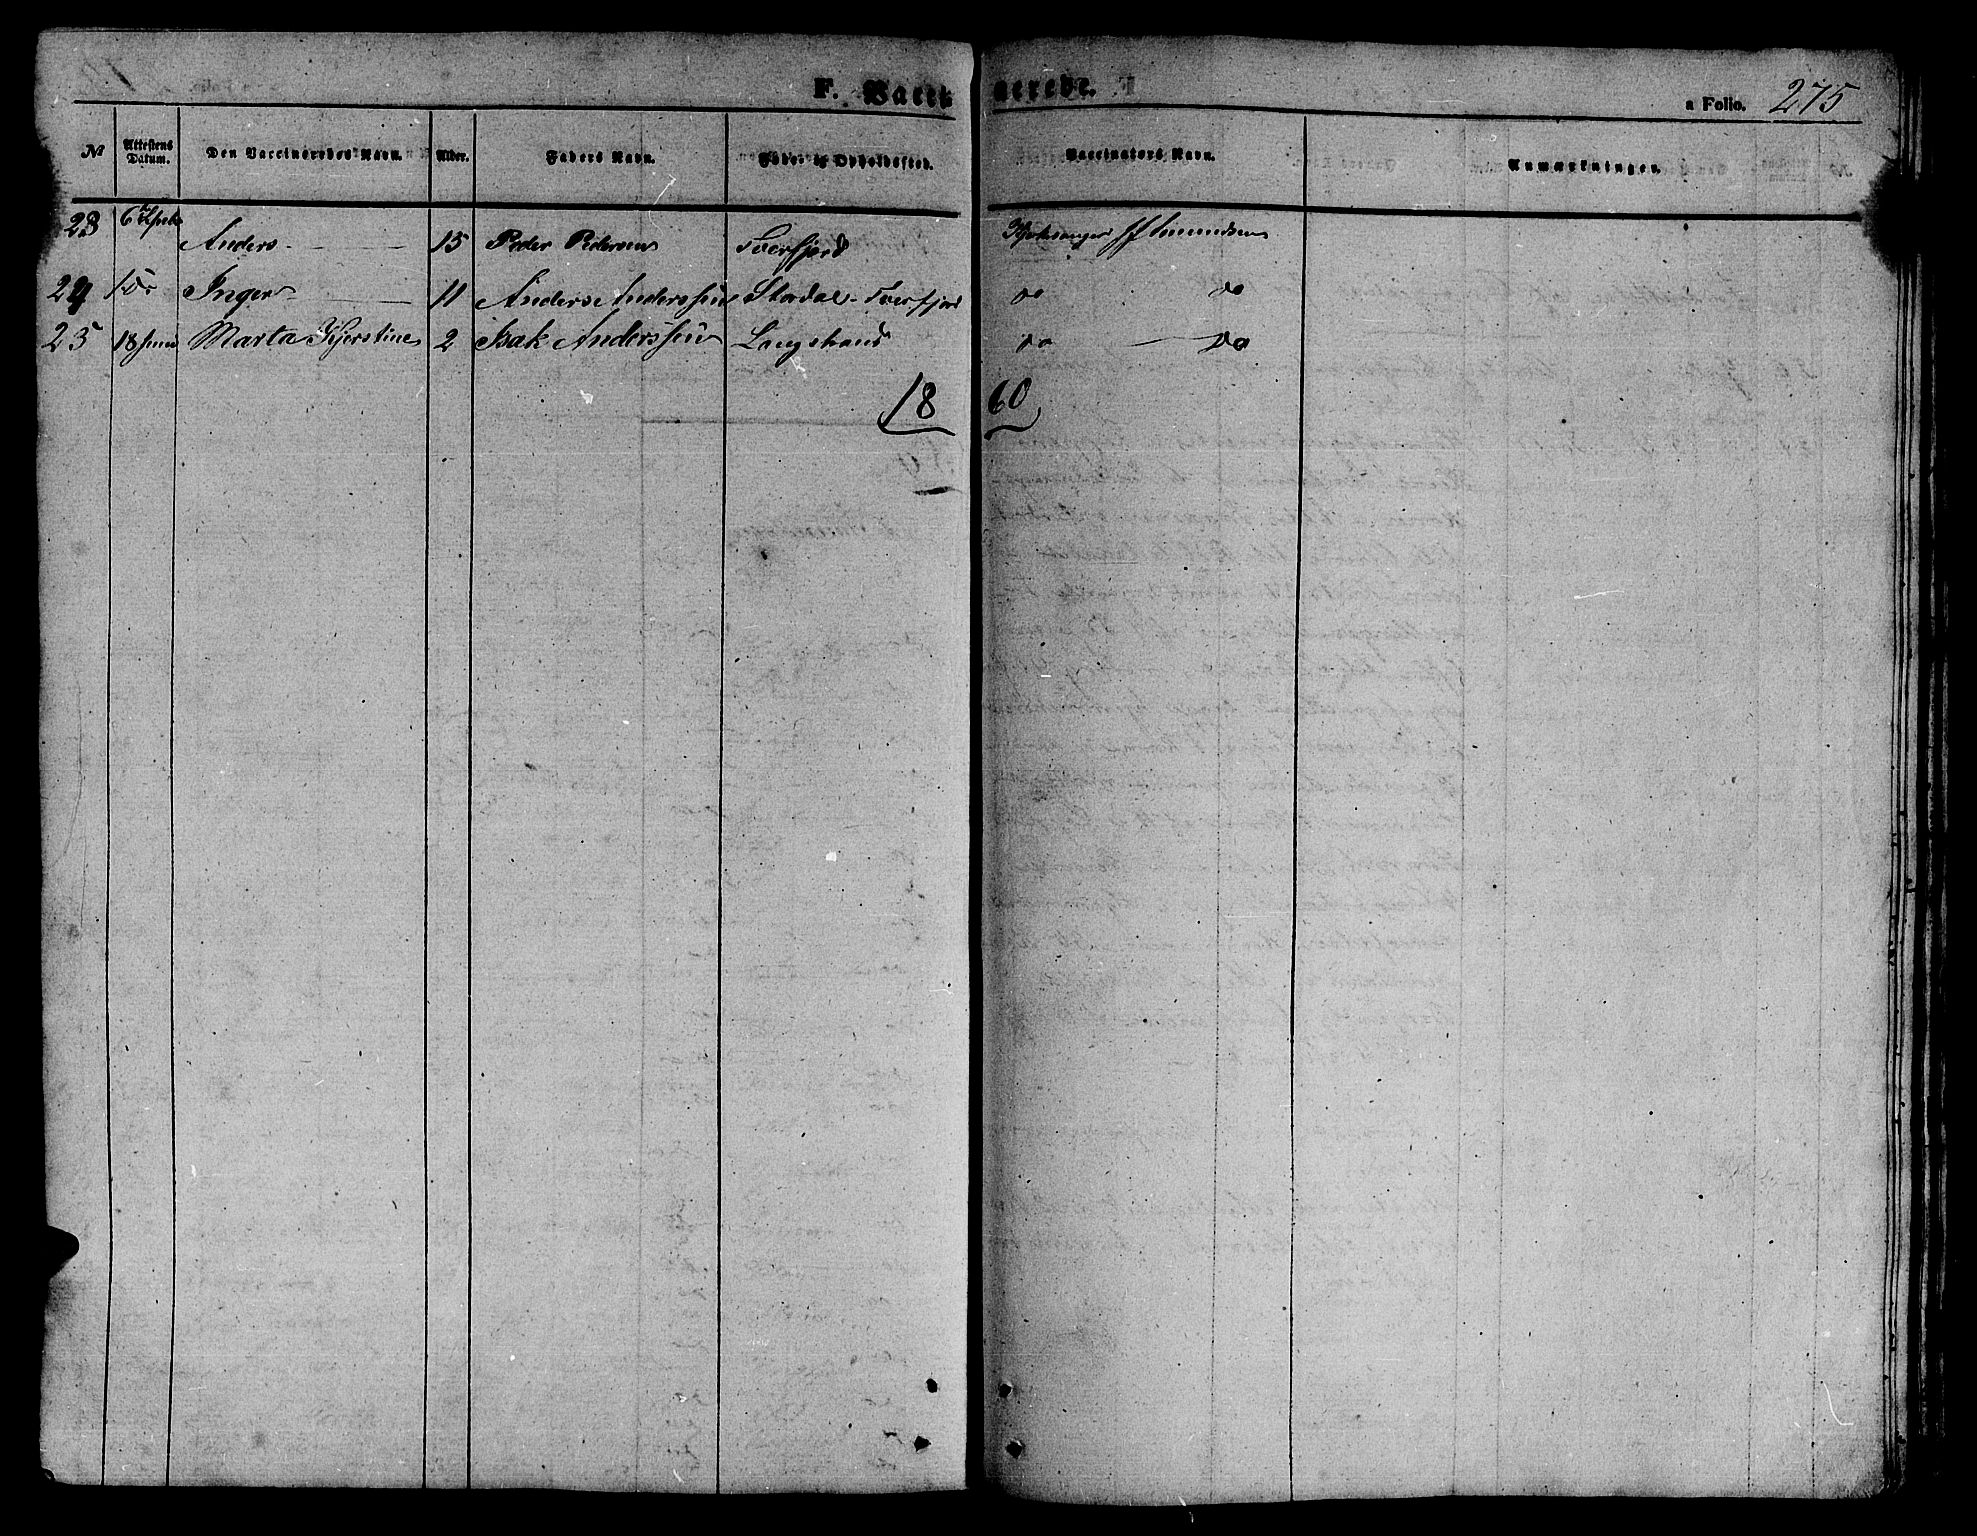 F. Vaccinerede.
a Folio. 275
No Attestens Datum. Den Vaccineredes Navn. Alder. Faders Navn. Føde- og Opholdssted. Vaccinators Navn. Anmærkninger.
23 6 Anders 15 Peder Pedersen Tverfjord Kirkesanger Amundsen
24 Do Inger 11 Anders Anderssen Stordal - Tverfjord Do Do
25 18 Juni Marta Kjerstine 2 Isak Anderssen Langstrand Do Do
1860